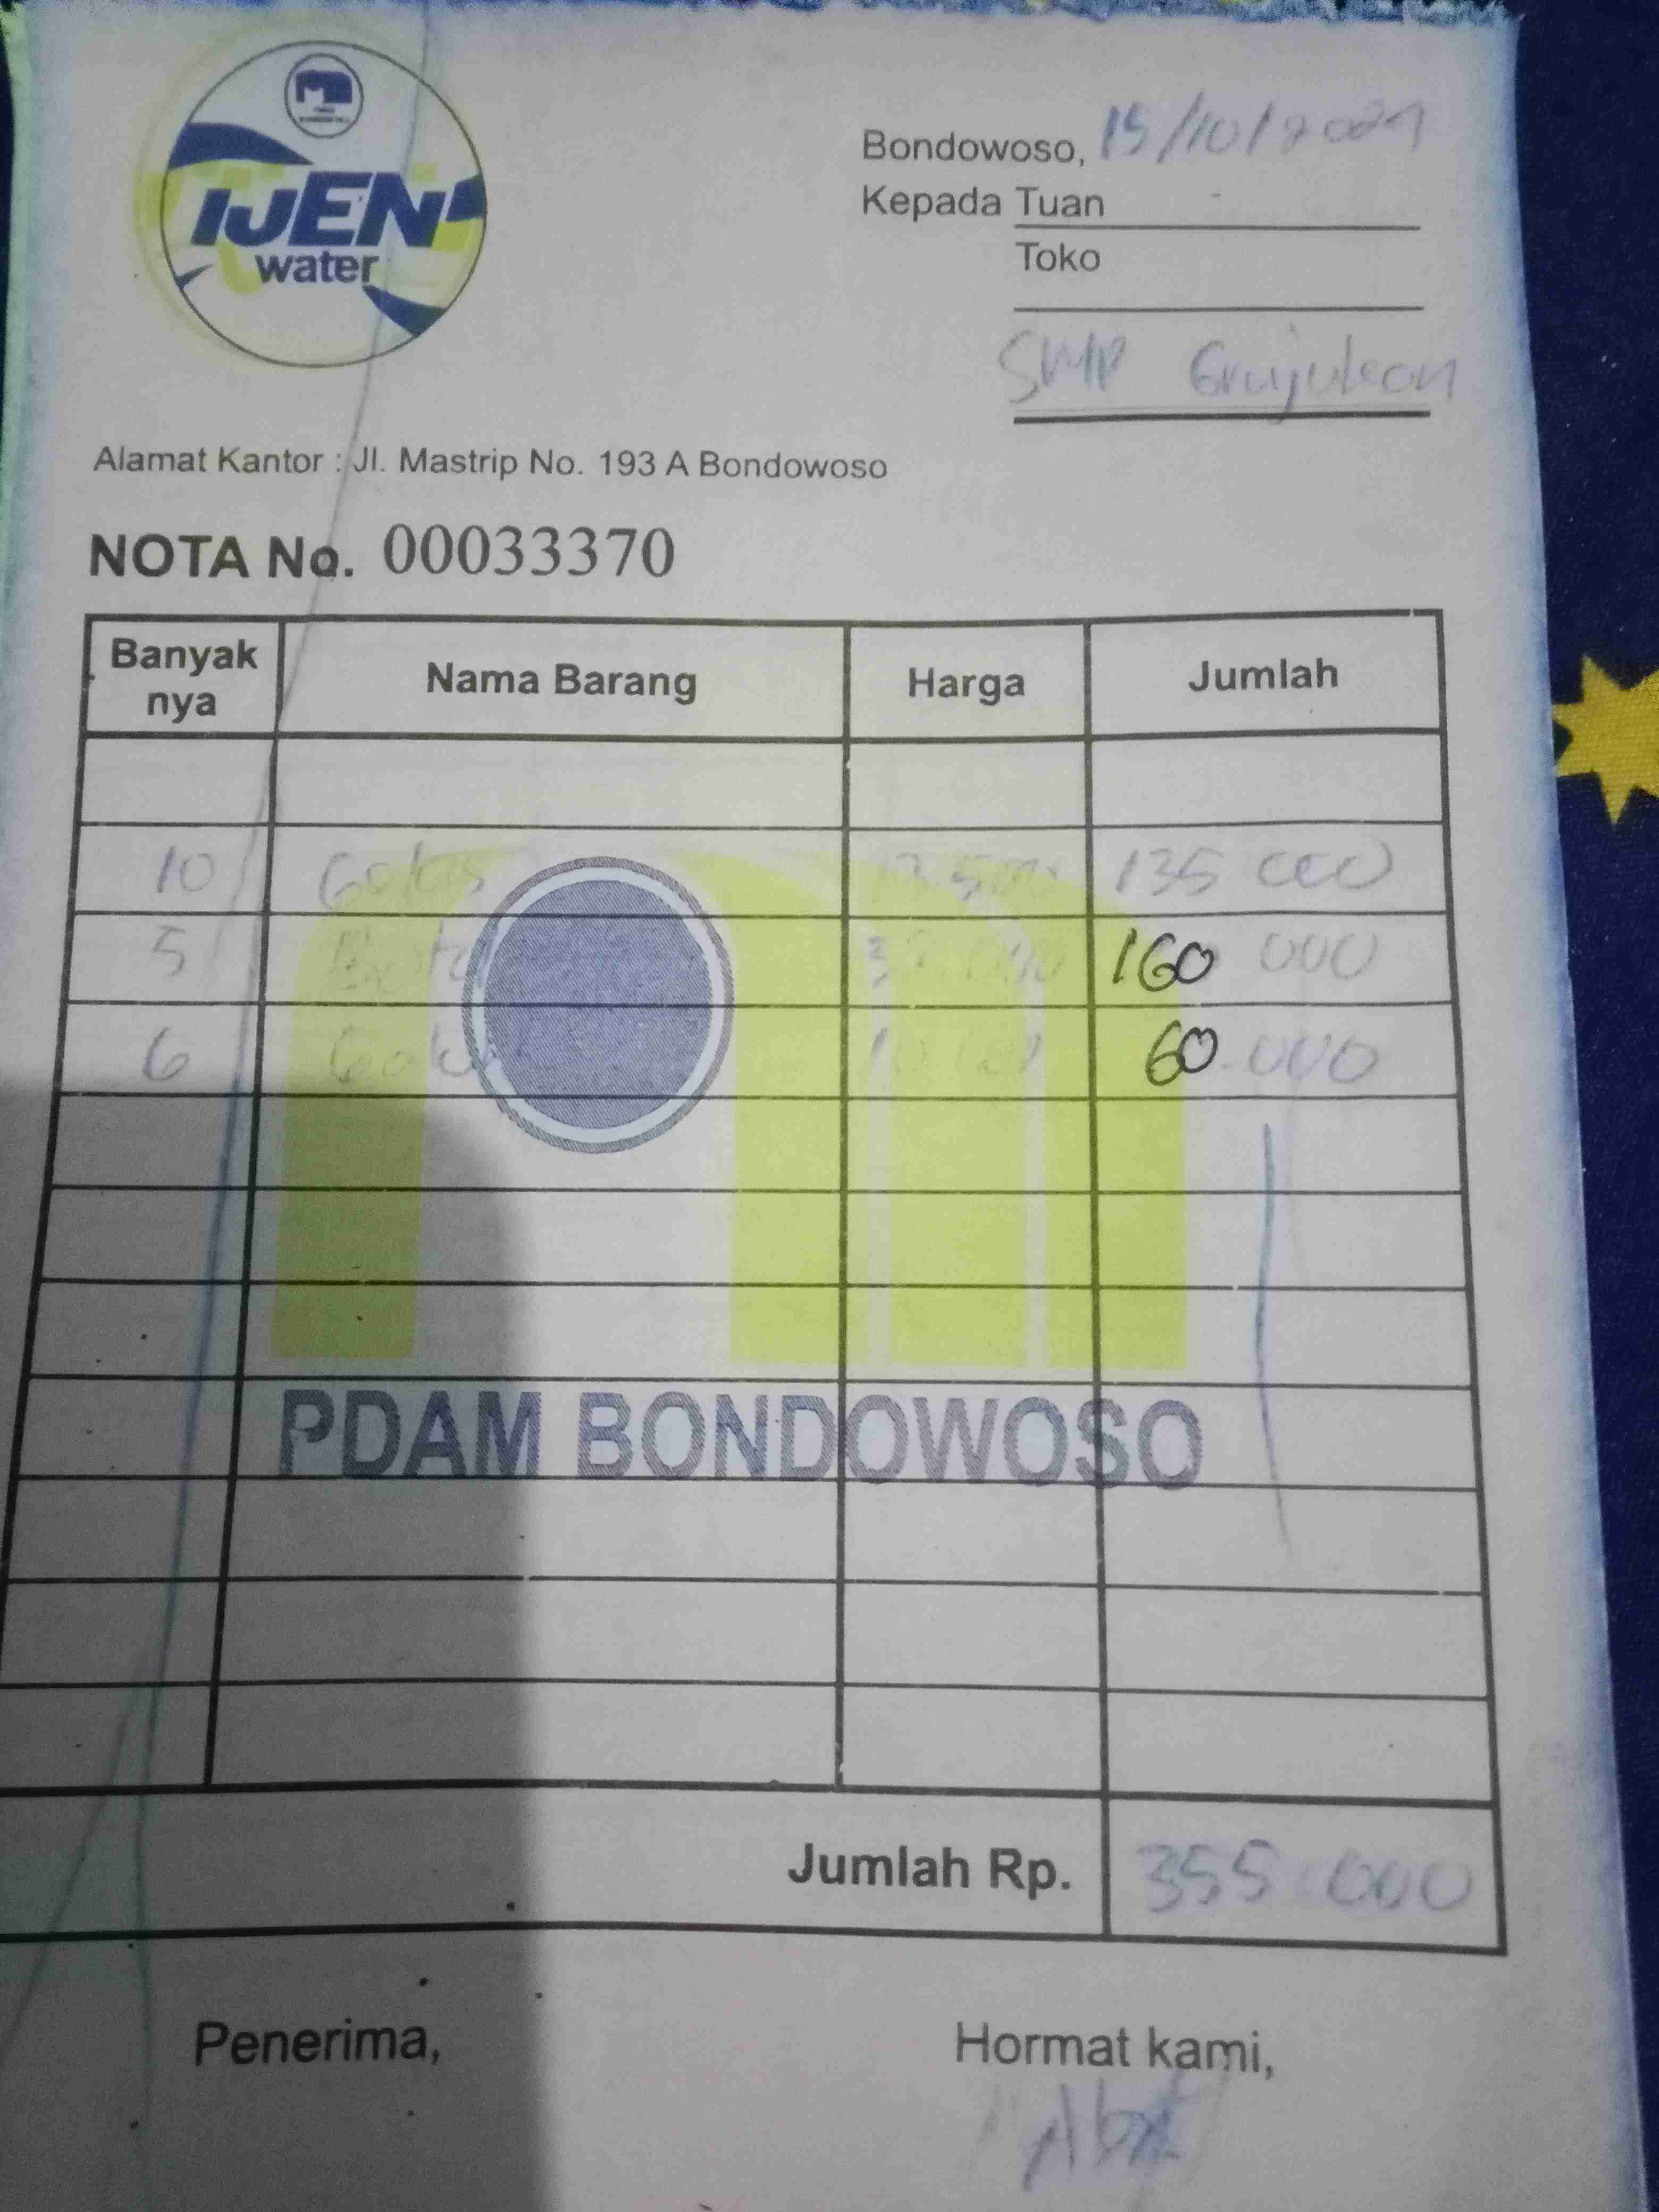 IJEN
water
Bondowoso, 15/10/2021
Kepada Tuan
Toko
SMP Grujukan
Alamat Kantor : Jl. Mastrip No. 193 A Bondowoso
NOTA No. 00033370
Banyak nya Nama Barang Harga Jumlah
10 13.500 135 000
5 160 000
6 60.000
PDAM BONDOWOSO
Jumlah Rp. 355.000
Penerima, Hormat kami,